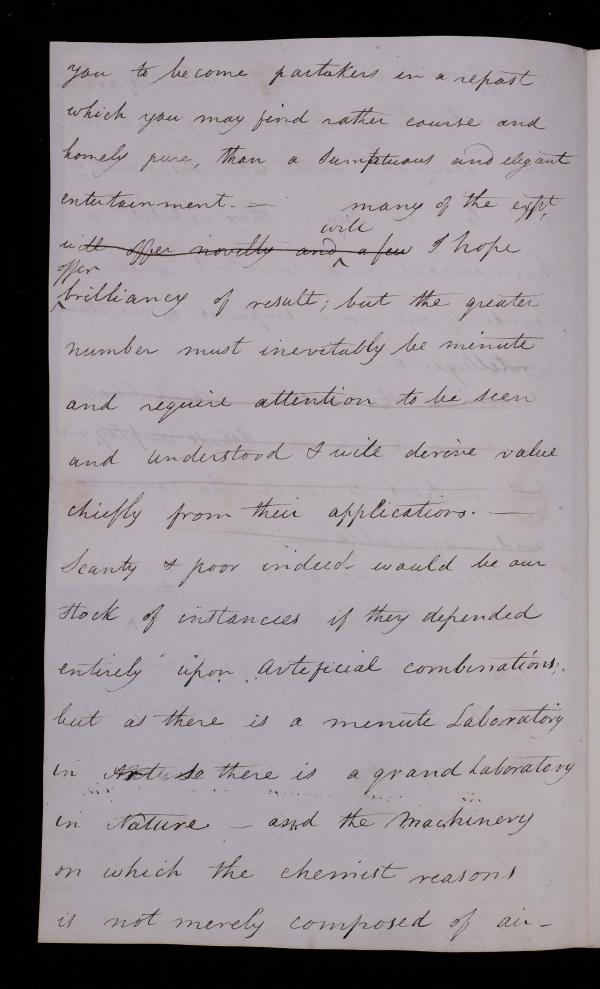 you to become partakers in a repast
which you may find rather course and
homely pure, than a sumptuous and elegant
entertainment. — many of the expts,
will
will offer novelty and a few I hope
offer
brilliancy of result; but the greater
number must inevitably be minute
and require attention to be seen
and understood & will derive value
chiefly from their applications. —
Scanty & poor indeed would be our
stock of instances if they depended
entirely upon arteficial combinations;
but as there is a minute Laboratory
in Art so there is a grand Laboratory
in Nature — and the Machinery
on which the chemist reasons
is not merely composed of air-